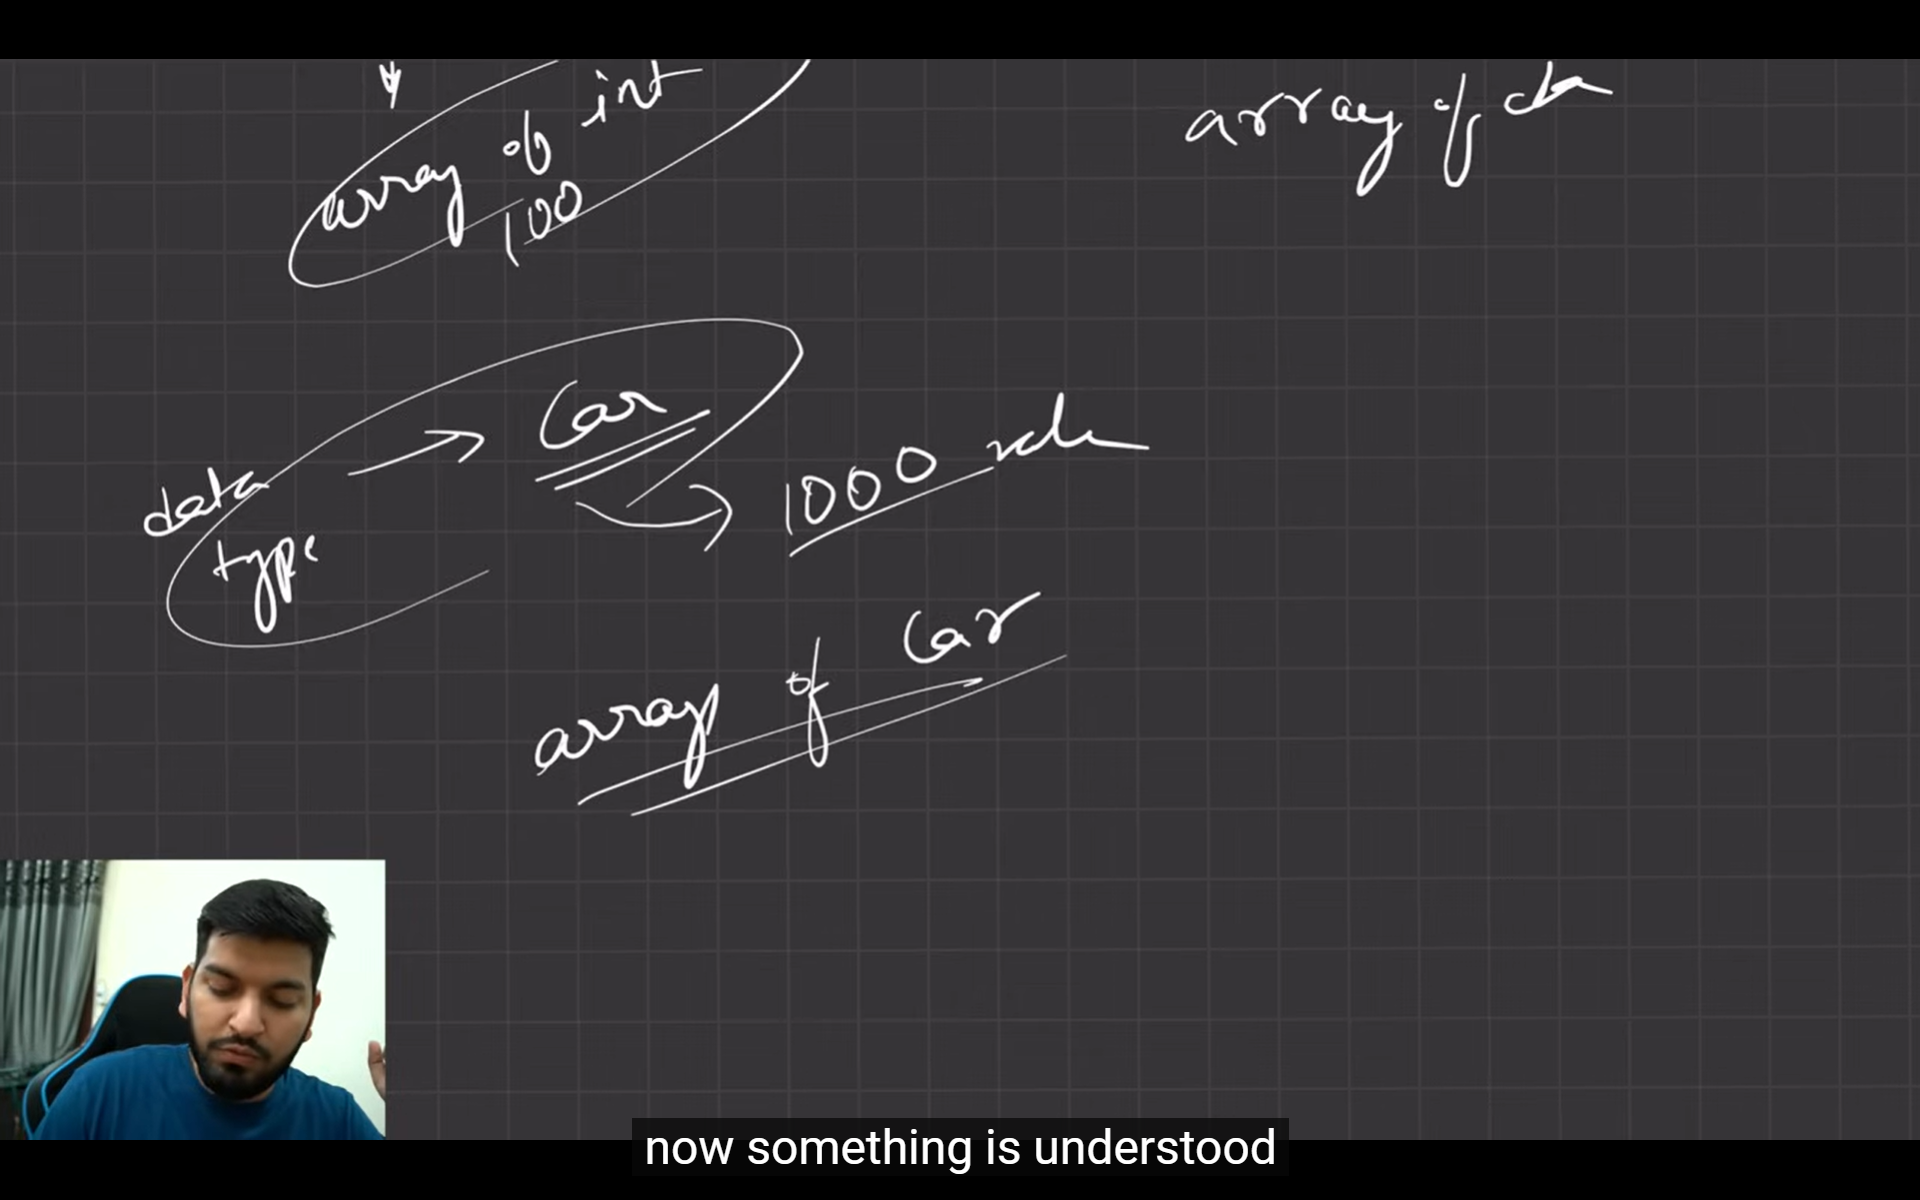 array of int
100
array of
data
type
Car
1000
array of Car
now something is understood